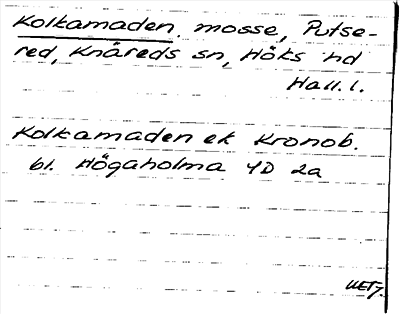 Kolkamaden, mosse, Putse-
red, Knäreds sn, Höks hd
Hall. l.
Kolkamaden ek Kronob.
bl. Högaholma 4D 2a